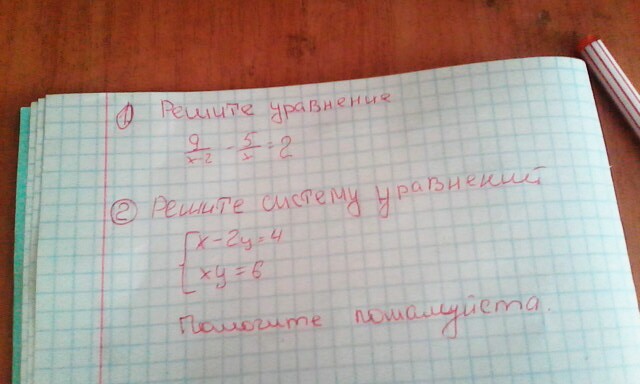 ① Решите уравнение
9/(x-2) - 5/x = 2
② Решите систему уравнений
{ x-2y=4
xy=6
Помогите пожалуйста.